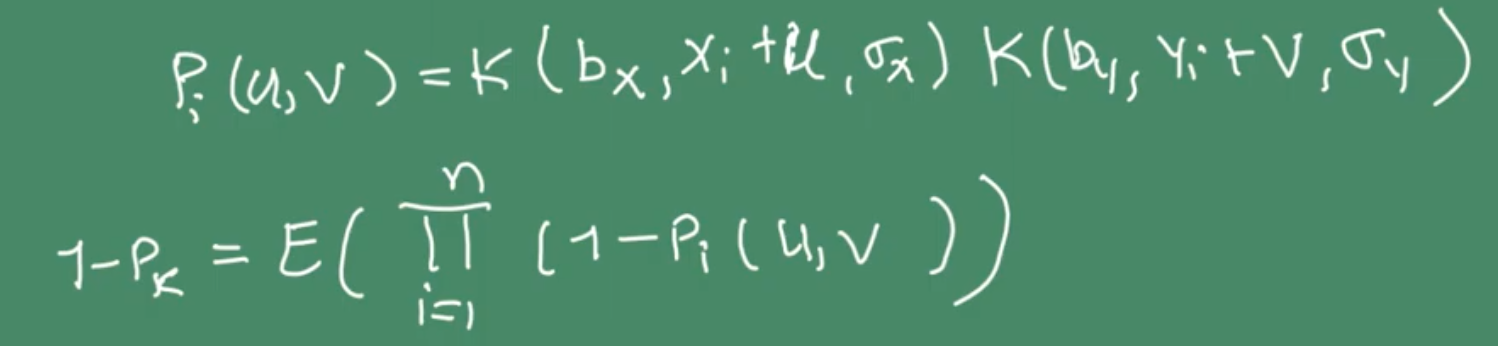 P_i(u,v) = K(b_x, x_i + u, σ_x) K(b_y, y_i + v, σ_y)
1 - P_K = E( ∏_{i=1}^{n} (1 - P_i(u,v)))